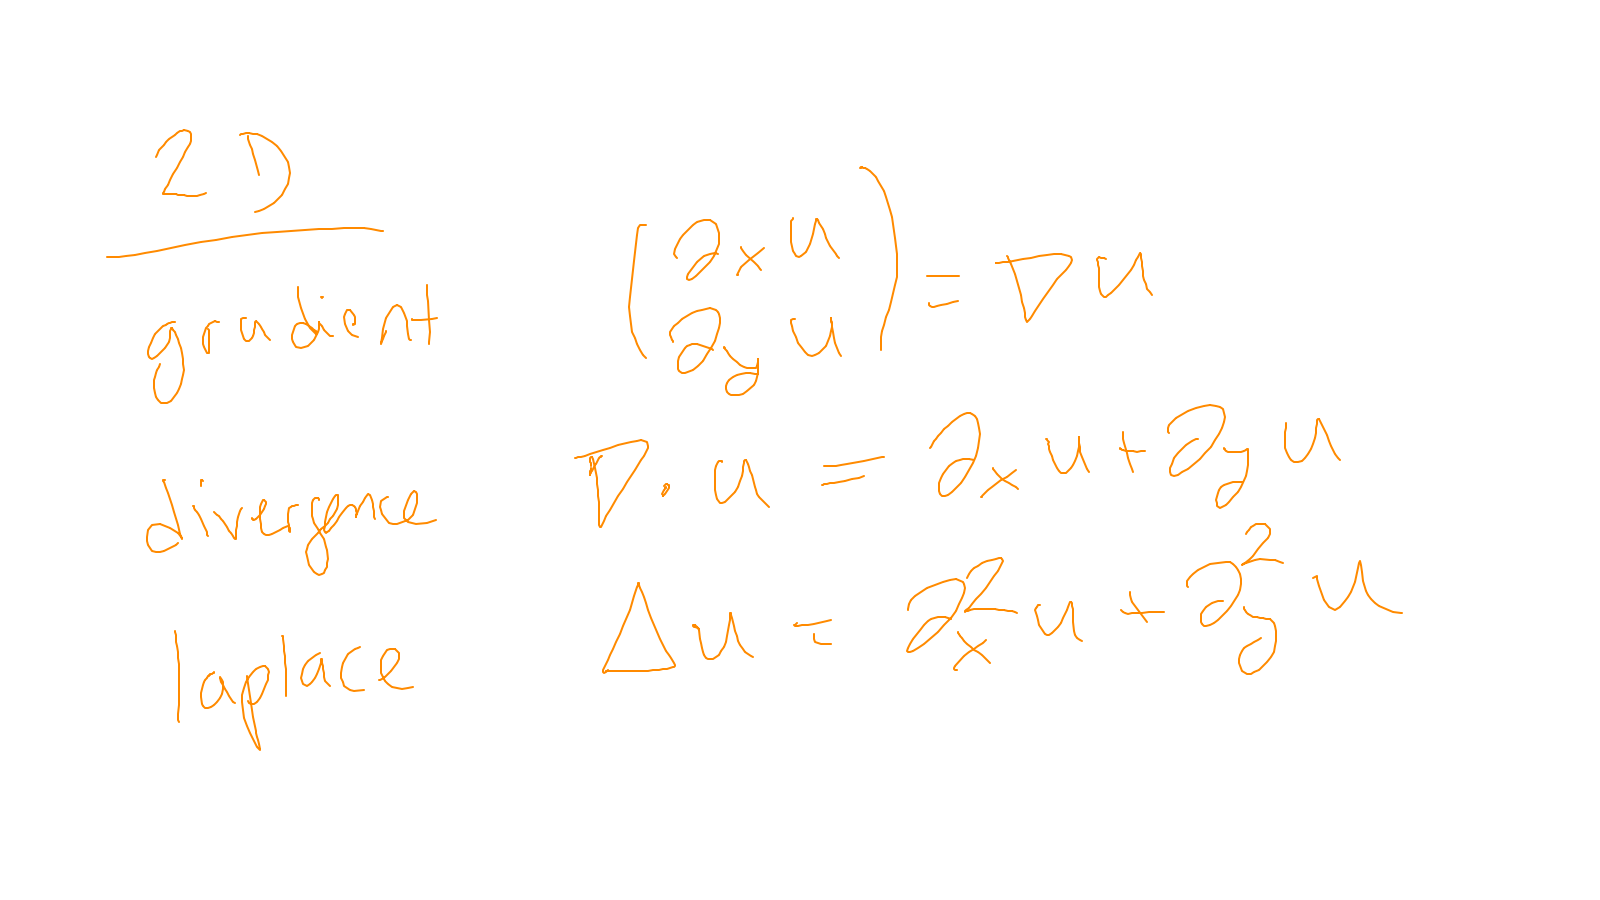 2D
gradient
(∂ₓu
∂ᵧu) = ∇u
divergence ∇·u = ∂ₓu + ∂ᵧu
laplace Δu = ∂ₓ²u + ∂ᵧ²u